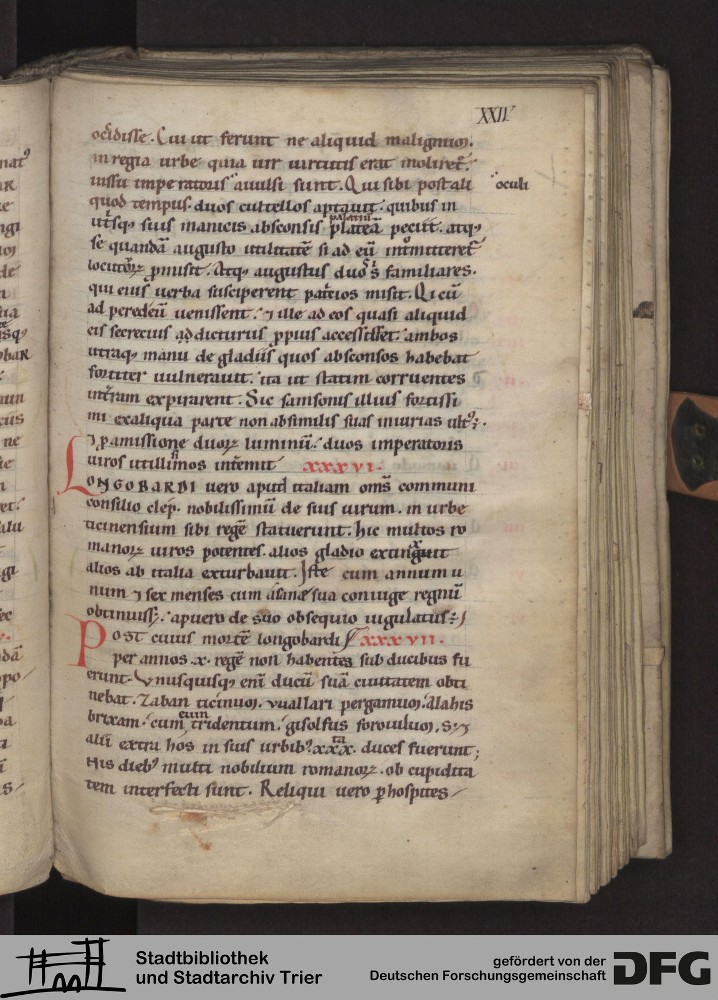 XXII
occidisse. Cui ut ferunt ne aliquid malignum.
in regia urbe quia uir uirtutis erat moliret̄.
iussu imperatoris auulsi sunt. Qui sibi post ali
oculi
quod tempus. duos cultellos aptauit. quibus in
ut̄sq; suis manicis absconsis plateā petiit. atq;
se quandā augusto utilitatē si ad eū int̄mitteret̄
locutūꝝ ꝓmisit. Atq; augustus duos familiares.
qui eius uerba susciperent patricios misit. Qi cū
ad peredeū uenissent. ⁊ ille ad eos quasi aliquid
eis secretius addicturus ꝓpius accessisset. ambos
utraq; manu de gladiis quos absconsos habebat
fortiter uulnerauit. ita ut statim corruentes
int̄ram expirarent. Sic samsonis illius fortissi
mi ex aliqua parte non absimilis suas iniurias ult;
⁊ ꝑ amissione duoꝝ luminū. duos imperatoris
uiros utillimos int̄emit xxxvi.
LONGOBARDI uero apud italiam om̄s communi
consilio clep. nobilissimū de suis uirum. in urbe
ticinensium sibi regē statuerunt. hic multos ro
manoꝝ uiros potentes. alios gladio extinguit
alios ab italia exturbauit. Iste cum annum u
num ⁊ sex menses cum asane sua coniuge regnū
obtinuiss;. a puero de suo obsequio iugulatus;
POST cuius mortē longobardi xxxvii.
per annos .x. regē non habentes sub ducibus fu
erunt. Vnusquisq; eni ducū suā ciuitatem obti
nebat. Zaban ticinum. vuallari pergamum. Alahis
brixam. cum euin tridentum. gisolfus foroiulum, S;⁊
alii extra hos in suis urbib; xxx ta. duces fuerunt;
His dieb; multi nobilium romanoꝝ. ob cupidita
tem interfecti sunt. Reliqui uero ꝑ hospites
Stadtbibliothek
und Stadtarchiv Trier
gefördert von der
Deutschen Forschungsgemeinschaft
DFG